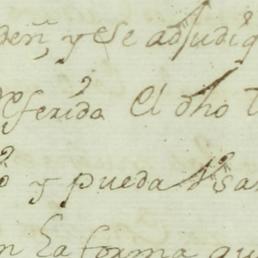 deñ, y se adjudiq
referida El dho
y pueda Usa
en la forma qu